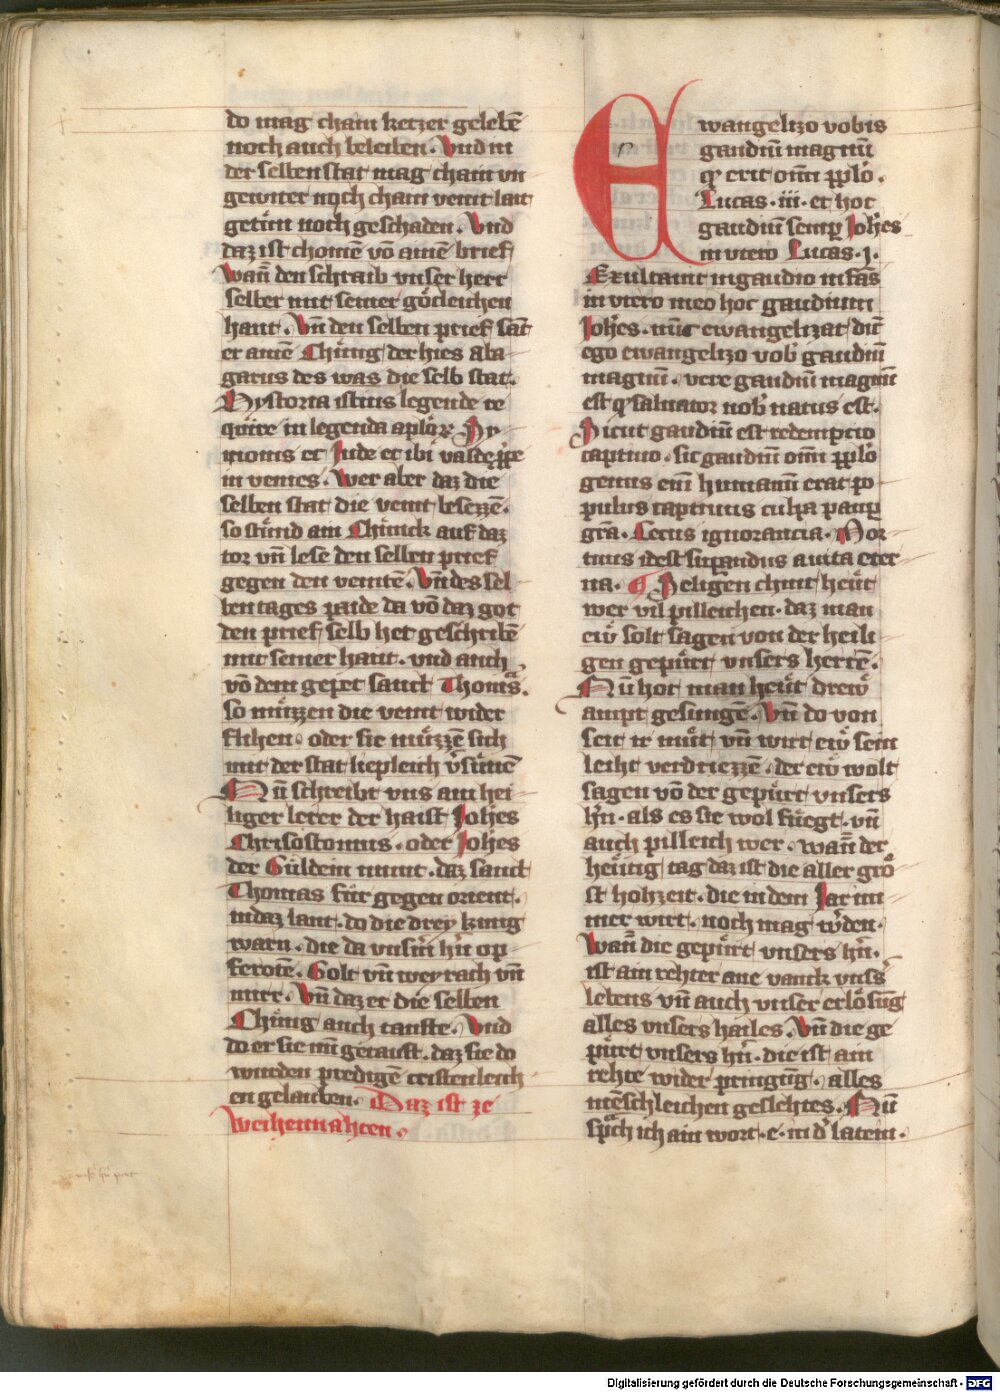 do mag chain ketzer gelebē
noch auch beleiben. Vnd in
der selben stat mag chain vn
gewiter noch chain veint lait
getůn noch geschaden. Vnd
daz ist chomē vō ainē brief
Wañ den schraib vnser herr
selber mit seiner gȯtleichen
hant. Vñ den selben prief sāt
er ainē Chůnig der hies aba
garus des was die selb stat.
Hystoria istius legende re
quire in legenda aplōꝝ Sy
monis et Jude et ibi
inuenies. Wer aber daz die
selben stat die veint besezzē.
so stůnd ain Chinck auf daz
tor vñ lese den selben prief
gegen den veintē. Vñ des sel
ben tages
den prief selb het geschribē
mit seiner hant. vnd auch
vō dem gepet sanct Thomas.
so můzzen die veint wider
flihen. oder sie můzzē sich
mit der stat liepleich v̄sůnē
Nů schreibt vns ain hei
liger lerer der haist Joħes
Chrisostomus. oder Joħes
der Guldein munt. daz sanct
Thomas fůr gegen orient.
in daz lant. do die drey kunig
warn. die da vnsm̄ hn̄ op
ferotē. Golt vñ weyrach vñ
mirr. Vñ daz er die selben
Chůnig auch taufte. Vnd
do er sie nu getauft. daz sie do
wurden predigē cristenleich
en gelauben. Daz ist ze
weihennahten.
Ewangelizo vobis
gaudiū magnū
qͥ erit omī pplo.
Lucas. iii. et hoc
gaudiū semp Joħes
in vtero Lucas. j.
Exultauit in gaudio infās
in vtero meo hoc gaudium
Joħes. nūc ewangelizat dn̄c
ego ewangelizo vob gaudiū
magnū. vere gaudiū magnū
est qͥ saluator nob natus est.
Sicut gaudiū est redempcio
captiuo. sic gaudiū omī pplo
genus enī humanū erat po
pulus captiuus culpa paup
gr̄a. Cecus ignorancia. Mor
tuus idest sepandus a vita eter
na. ¶ Seligen chint heůt
wer vil pilleichen. daz man
ew̄ solt sagen von der heili
gen gepůrt vnsers herrē.
Nů hot man heůt drew̄
ampt gesungē. Vñ do von
seit ir můt vñ wirt ew̄ sein
leiht verdriezzē. der ew̄ wolt
sagen vō der gepůrt vnsers
hn̄. als es sie wol fůegt. vñ
auch pilleich wer. wañ der
heůtig tag daz ist die aller grȯ
st hohzeit. die in dem Jar im
mer wirt. noch mag w̄den.
Wañ die gepůrt vnsers hn̄.
ist ain rehter ane vanck vnss̄
lebens vñ auch vnser erlȯsūg
alles vnsers hailes. Vñ die ge
půrt vnsers hn̄. die ist ain
rehte wider pringūg. alles
mēschleichen geslehtes. Nů
sprach ich ain wort. e. in d̄ latein.
Digitalisierung gefördert durch die Deutsche Forschungsgemeinschaft - DFG